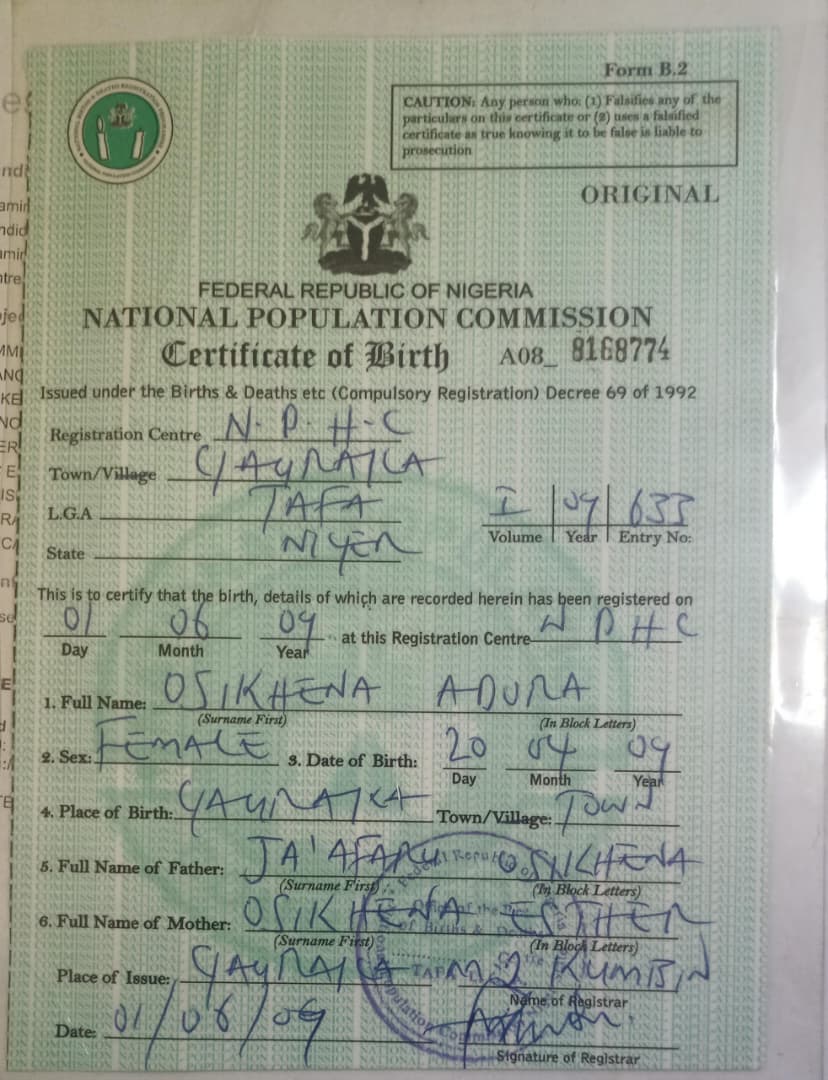 Form B.2
CAUTION: Any person who: (1) Falsifies any of the
particulars on this certificate or (2) uses a falsified
certificate as true knowing it to be false is liable to
prosecution
ORIGINAL
FEDERAL REPUBLIC OF NIGERIA
NATIONAL POPULATION COMMISSION
Certificate of Birth A08_ 8168774
Issued under the Births & Deaths etc (Compulsory Registration) Decree 69 of 1992
Registration Centre N.P.H.C
Town/Village
L.G.A TAFA
I 09 633
Volume Year Entry No:
State
This is to certify that the birth, details of which are recorded herein has been registered on
01 06 09 at this Registration Centre PHC
Day Month Year
1. Full Name: OSIKHENA ADURA
(Surname First) (In Block Letters)
2. Sex: FEMALE 3. Date of Birth: 20 04 09
Day Month Year
4. Place of Birth: Town/Village: TOWN
5. Full Name of Father: JA'AFARU OSIKHENA
(Surname First) (In Block Letters)
6. Full Name of Mother: OSIKHENA ESTHER
(Surname First) (In Block Letters)
Place of Issue:
Name of Registrar
Date: 01/06/09
Signature of Registrar